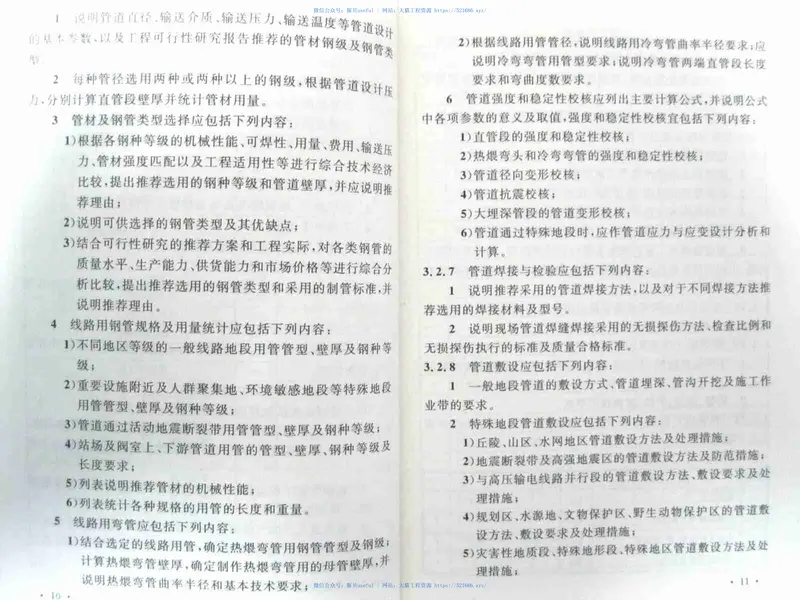 1 说明管道直径、输送介质、输送压力、输送温度等管道设计
的基本参数、以及工程可行性研究报告推荐的管材钢级及钢管类
型。
2 每种管径选用两种或两种以上的钢级,根据管道设计压
力,分别计算直管段壁厚并统计管材用量。
3 管材及钢管类型选择应包括下列内容:
1)根据各钢种等级的机械性能、可焊性、用量、费用、输送压
力、管材强度匹配以及工程适用性等进行综合技术经济
比较,提出推荐选用的钢种等级和管道壁厚,并应说明推
荐理由;
2)说明可供选择的钢管类型及其优缺点;
3)结合可行性研究的推荐方案和工程实际,对各类钢管的
质量水平、生产能力、供货能力和市场价格等进行综合分
析比较,提出推荐选用的钢管类型和采用的制管标准,并
说明推荐理由。
4 线路用钢管规格及用量统计应包括下列内容:
1)不同地区等级的一般线路地段用管管型,壁厚及钢种等
级;
2)重要设施附近及人群聚集地、环境敏感地段等特殊地段
用管管型、壁厚及钢种等级;
3)管道通过活动地震断裂带用管管型、壁厚及钢种等级;
4)站场及阀室上、下游管道用管的管型、壁厚、钢种等级及
长度要求;
5)列表说明推荐管材的机械性能;
6)列表统计各种规格的用管的长度和重量。
5 线路用弯管应包括下列内容:
1)结合选定的线路用管,确定热煨弯管用钢管管型及钢级;
计算热煨弯管壁厚,确定制作热煨弯管用的母管壁厚,并
说明热煨弯管曲率半径和基本技术要求;
· 10 ·
2)根据线路用管管径,说明线路用冷弯管曲率半径要求;应
说明冷弯弯管用管型要求;说明冷弯管两端直管段长度
要求和弯曲度数要求。
6 管道强度和稳定性校核应列出主要计算公式,并说明公式
中各项参数的意义及取值,强度和稳定性校核宜包括下列内容:
1)直管段的强度和稳定性校核;
2)热煨弯头和冷弯弯管的强度和稳定性校核;
3)管道径向变形校核;
4)管道抗震校核;
5)大埋深管段的管道变形校核;
6)管道通过特殊地段时,应作管道应力与应变设计分析和
计算。
3.2.7 管道焊接与检验应包括下列内容:
1 说明推荐采用的管道焊接方法,以及对于不同焊接方法推
荐选用的焊接材料及型号。
2 说明现场管道焊缝焊接采用的无损探伤方法、检查比例和
无损探伤执行的标准及质量合格标准。
3.2.8 管道敷设应包括下列内容:
1 一般地段管道的敷设方式、管道埋深、管沟开挖及施工作
业带的要求。
2 特殊地段管道敷设应包括下列内容:
1)丘陵、山区、水网地区管道敷设方法及处理措施;
2)地震断裂带及高强地震区的管道敷设方法及防范措施;
3)与高压输电线路并行段的管道敷设方法、敷设要求及处
理措施;
4)规划区、水源地、文物保护区、野生动物保护区的管道敷
设方法、敷设要求及处理措施;
5)灾害性地质段、特殊地形段、特殊地区管道敷设方法及处
理措施;
· 11 ·